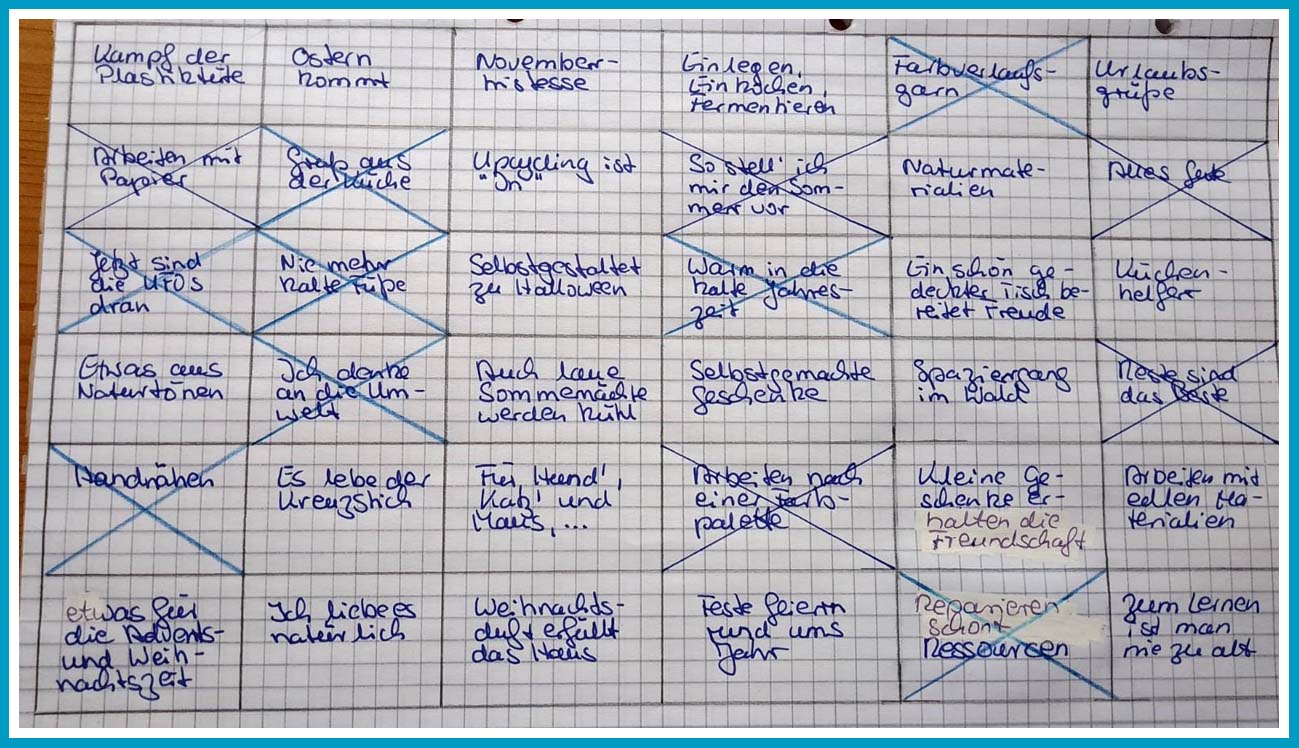 Kampf der
Plastiktüte
Ostern
kommt
November-
tristesse
Einlegen,
Einkochen,
Fermentieren
Farbverlaufs-
garn
Urlaubs-
grüße
Arbeiten mit
Papier
Spaß aus
der Küche
Upcycling ist
"in"
So stell' ich
mir den Som-
mer vor
Naturmate-
rialien
Alles
Jetzt sind
die UFOs
dran
Nie mehr
kalte Füße
Selbstgestaltet
zu Halloween
Warm in die
kalte Jahres-
zeit
Ein schön ge-
deckter Tisch be-
reitet Freude
Küchen-
helfer
Etwas aus
Naturtönen
Ich denke
an die Um-
welt
Auch laue
Sommernächte
werden kühl
Selbstgemachte
Geschenke
Spaziergang
im Wald
Reste sind
das Beste
Handnähen
Es lebe der
Kreuzstich
Für Hund',
Katz' und
Maus, ...
Arbeiten nach
einer Farb-
palette
Kleine Ge-
schenke er-
halten die
Freundschaft
Arbeiten mit
edlen Ma-
terialien
etwas für
die Advents-
und Weih-
nachtszeit
Ich liebe es
natürlich
Weihnachts-
duft erfüllt
das Haus
Feste feiern
rund ums
Jahr
Reparieren
schont
Ressourcen
Zum Lernen
ist man
nie zu alt